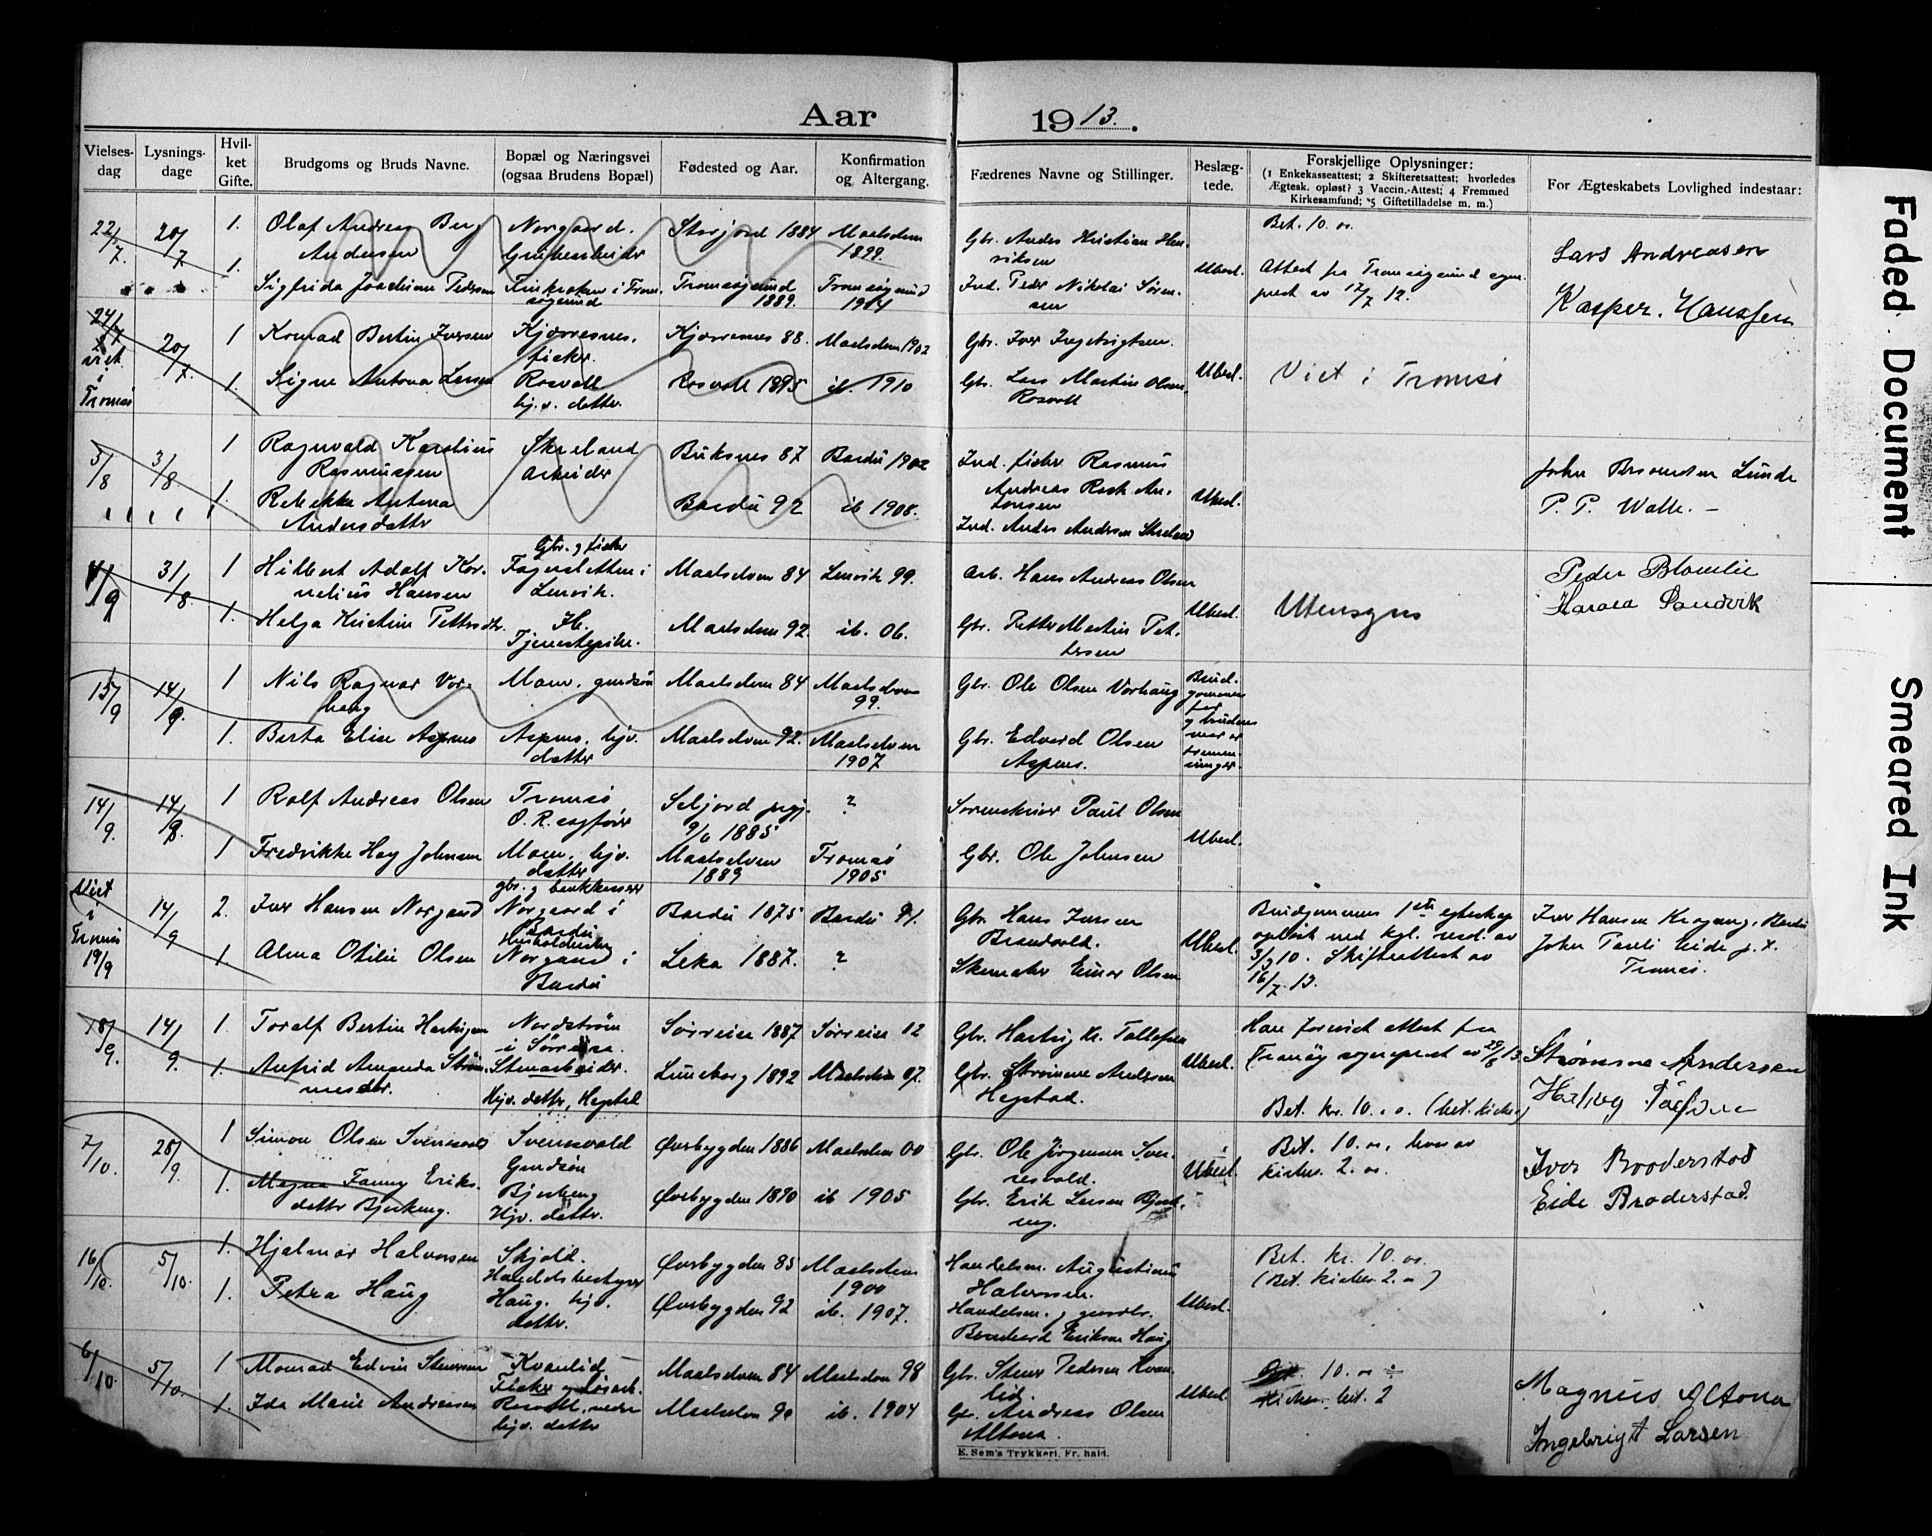 Aar 1913.
Vielses-dag
Lysnings-dage
Hvil-ket Gifte.
Brudgoms og Bruds Navne.
Bopæl og Næringsvei (ogsaa Brudens Bopæl)
Fødested og Aar.
Konfirmation og Altergang.
Fædrenes Navne og Stillinger.
Beslæg-tede.
Forskjellige Oplysninger:
(1 Enkekasseattest; 2 Skifteretsattest; hvorledes
Ægtesk. opløst? 3 Vaccin.-Attest; 4 Fremmed
Kirkesamfund; 5 Giftetilladelse m. m.)
For Ægteskabets Lovlighed indestaar:
22/7. 20/7 1. Olaf Andreas Berg Norgaard. Storfjord 1884 Maalselven
Andersen Grubearbeider 1899.
Gbr. Anders Kristian Hen-
riksen
Ubesl.
Bet. 10.
Lars Andreasen
1. Sigfrida Joachime Pedersen Finkroken i Trom-søsund Tromsøsund 1889. Tromsøsund
Ind. Peder Nikolai Søren-
sen
Attest fra Tromsøsund sogne-
prest av 12/7 12.
Kasper. Hanssen
24/7 viet i Tromsø 20/7. 1 Konrad Bertin Iversen Kjærresnes, fisker. Kjærresnes 88. Maalselven 1902
Gbr. Iver Ingebrigtsen.
Ubesl.
Viet i Tromsø
1. Signe Antona Larsen Rosvoll hj.v. datter. Rosvoll 1895 ib. 1910
Gbr. Lars Martin Olsen,
Rosvoll
3/8 3/8. 1 Ragnvald Karelius Rasmussen Skrelund Arbeider Buksnes 87 Bardu 1902
Ind. fisker Rasmus
Andreas
Ubesl.
John Lunde
P. P. Walle. -
1. Rebekka Antona Andersdatter Bardu 92 ib 1908.
Ind. Anders Andersen
4/9 31/8. 1 Hilbert Adolf Kor-nelius Hansen Gbr. og fisker Fagersletten i Lenvik. Maalselven 84 Lenvik 99.
Arb. Hans Andreas Olsen
Ubesl.
Utensogns
Peder Blomlie
Harald Sandvik
1. Helga Kristine Pettersdtr. Tjenestepike. Maalselven 92. ib. 06.
Gbr. Petter Martin Pet-
tersen
15/9 14/9. 1 Nils Ragnar Vor-haug Moen, gaardsøn Maalselven 84 Maalselven 99.
Gbr. Ole Olsen Vorhaug
Brud-gommens far og brudens mor er
1. Berta Elise Aspenes Aspenes, hjv. datter Maalselven 92. Maalselven 1907
Gbr. Edvard Olsen
Aspenes.
14/9. 14/9. 1 Rolf Andreas Olsen Tromsø O. R. sagfører Seljord pgj. 9/6 1885 ?
Sorenskriver Paul Olsen
Ubesl.
1 Fredrikke Hay Johnsen Moen, hjv. datter Maalselven 1889 Tromsø 1905
Gbr. Ole Johnsen
Viet i Tromsø 19/9 14/9 2. Iver Hansen Norgaard Norgaard i Bardu Bardu 1875 Bardu 91.
Gbr. Hans Iversen
Brandvold.
Ubesl.
Brudgommens 1ste egteskap
opløst ved kgl. res. av
3/9 10. Skifteattest av
16/7. 13.
Iver Hansen Krogeng, Bardu
John Pauli Eide
Tromsø.
1 Alma Otilie Olsen Husholderske Norgaard i Bardu Leka 1887. ?
Skomaker Einar Olsen
18/9. 14/9. 1. Toralf Bertin Hartvigsen Nordstrøm i Sørreisa. Sørreisa 1887 Sørreisa 02
Gbr. Hartvig Kr. Tollefsen
Ubesl.
Har forevist attest fra
Tranøy sogneprest av 29/8 13.
Strømsne Andersen
1. Astrid Amanda Strøm-nesdtr. Stenarbeider. Hjv. datter, Hegstad Luneborg 1892 Maalselven 07.
Gbr. Strømsne Andersen
Hegstad.
Bet. kr. 10. (bet. kirken)
7/10. 28/9. 1 Simon Olsen Svensvold Svensvold Gaardsøn Øverbygden 1886 Maalselven 00
Gbr. Ole Jørgensen Sven-
svold.
Ubesl.
Bet. 10. hvorav
kirken. 2.
Iver Broderstad
1. Magna Fanny Eriks-datter Bjerkeng. Bjerkeng Hjv. datter. Øverbygden 1890 ib 1905
Gbr. Erik Larsen Bjerk-
eng.
Eide Broderstad.
16/10. 5/10. 1. Hjalmar Halvorsen Skjold. Handelsbestyrer Øverbygden 85 Maalselven 1900
Handelsm. Augustinius
Halvorsen.
Ubesl.
Bet. kr. 10.
(Bet. kirken 2.)
1. Petra Haug Haug. hjv. datter. Øverbygden 92 ib. 1907.
Handelsm. og gaardbr.
Bernhard Eriksen Haug
6/10. 5/10. 1 Monrad Edvin Steversen Kvanlid Fisker og løsarb. Maalselven 84 Maalselven 98
Gbr. Pedersen Kvan-
lid.
Ubesl.
10.
kirken. bet. 2
Magnus Altona
1. Ida Marie Andreasen Rosvoll, nedre hjv. datter Maalselven 90 ib. 1904
Gbr. Andreas Olsen
Altona.
Ingebrigt Larsen
E. Sem's Trykkeri, Fr.hald.
Faded Document
Smeared Ink